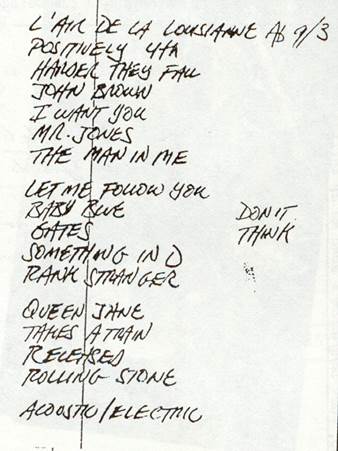 L'AIR DE LA LOUISIANNE AB 9/3
POSITIVELY 4th
HARDER THEY FALL
JOHN BROWN
I WANT YOU
MR. JONES
THE MAN IN ME
LET ME FOLLOW YOU
BABY BLUE
GATES
SOMETHING IN D
RANK STRANGER
DON'T
THINK
QUEEN JANE
TAKES A TRAIN
RELEASED
ROLLING STONE
ACOUSTIC/ELECTRIC